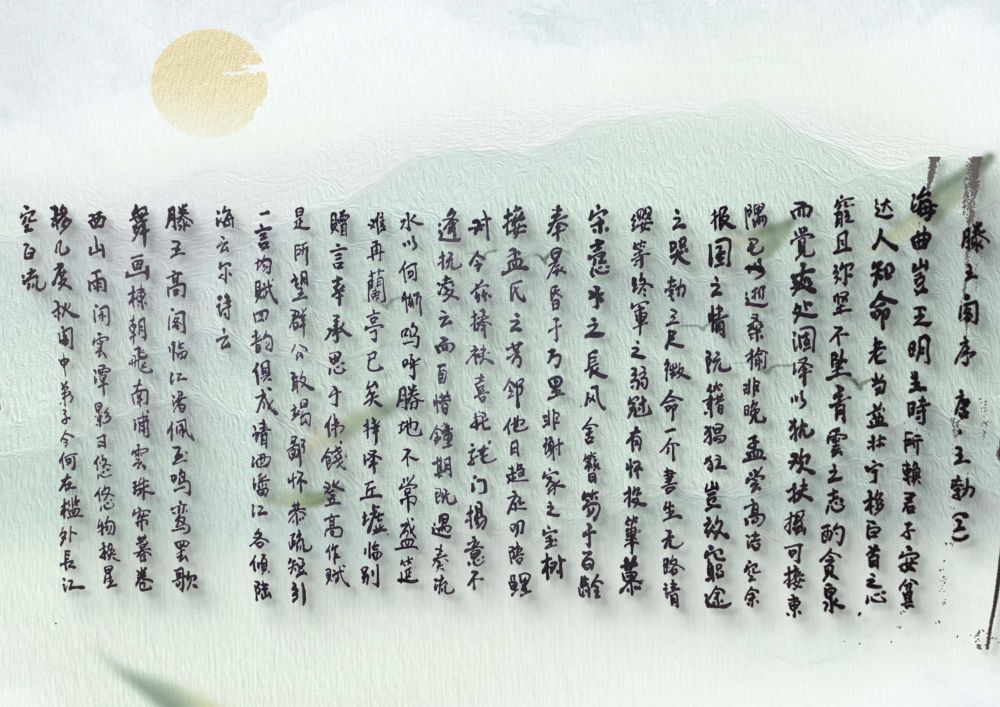 滕王阁序 唐王勃
海曲豈明主時所賴君子安貧
达人知命老当益壮宁移白首之心
窮且弥坚不坠青雲之志酌貪泉
而覺爽处涸泽以犹欢扶摇可接東
隅已逝桑榆非晚孟尝高洁空余
报国之情阮籍猖狂豈效窮途
之哭勃三尺微命一介書生无路请
缨等终軍之弱冠有怀投筆慕
宗慤之長风舍簪笏于百龄
奉晨昏于万里非谢家之宝树
接孟氏之芳邻他日趋庭叨陪鲤
对今兹捧袂喜托龙门揚意不
逢抚凌云而自惜鍾期既遇奏流
水以何惭呜呼勝地不常盛筵
难再蘭亭已矣梓泽丘墟临别
贈言幸承恩于伟餞登高作赋
是所望群公敢竭鄙怀恭疏短引
一言均赋四韵俱成请洒潘江各傾陆
海云尔诗云
滕王高阁临江渚佩玉鸣鸾罢歌
舞画棟朝飛南浦雲珠帘暮卷
西山雨闲雲潭影日悠悠物换星
移几度秋阁中弟子今何在槛外長江
空自流